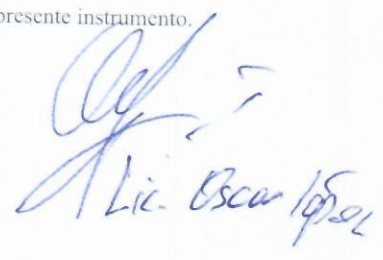 presente instrumento.
Lic. Oscar